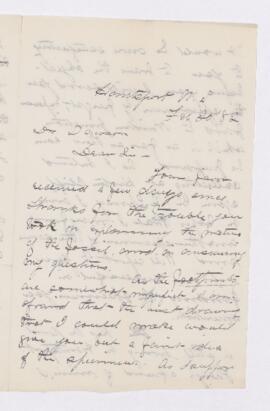 Hantsport N.S.
Feb. 21st 82
Dr. Dawson
Dear Sir -
Your favor
received a few days since
thanks for the trouble you
took in explaining the nature
of the fossil, and in answering
my questions.
As the footprints
are somewhat
found that the best drawing
that I could make would
give you but a faint idea
of the specimen. As